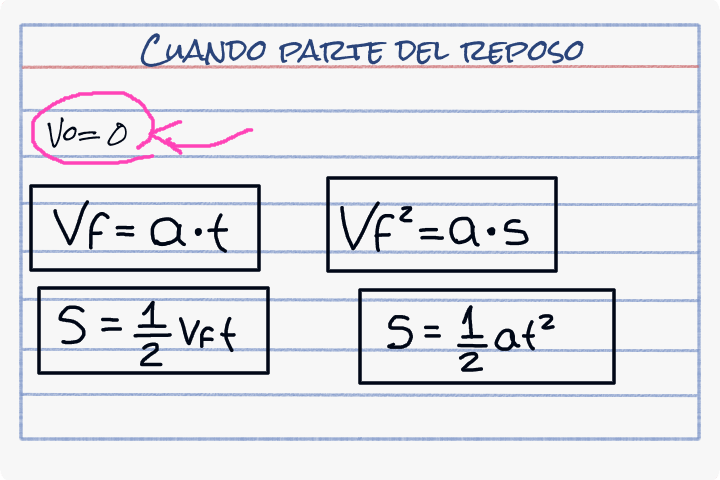 CUANDO PARTE DEL REPOSO
Vo= 0
Vf = a·t
Vf²=a·s
S = 1/2 Vft
S = 1/2 at²